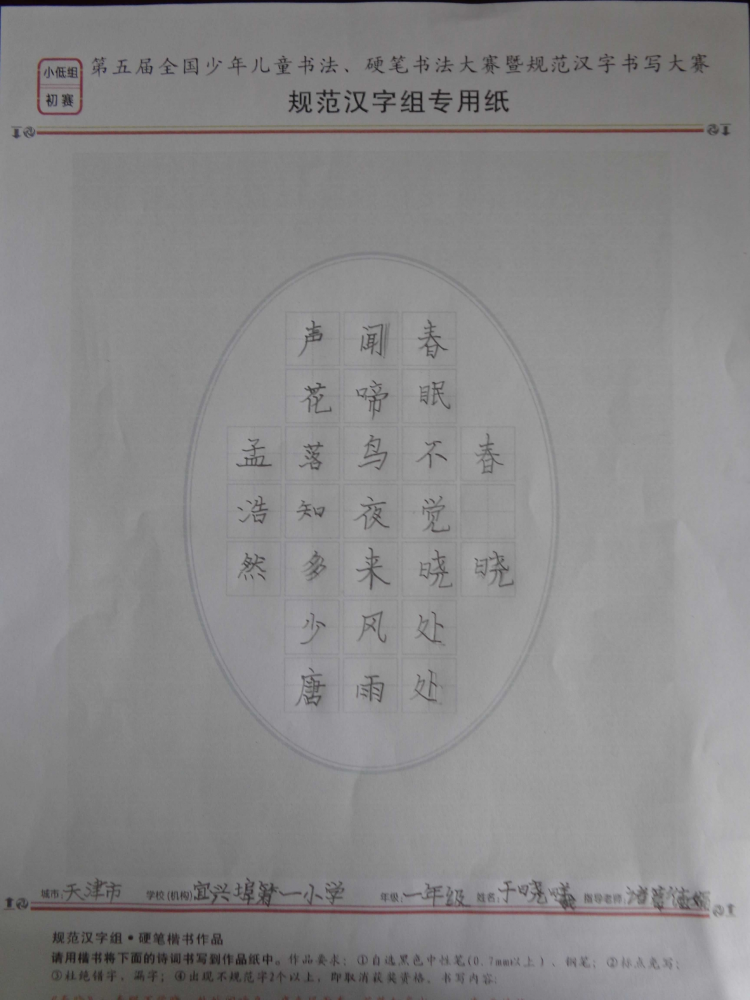 小低组
初赛
第五届全国少年儿童书法、硬笔书法大赛暨规范汉字书写大赛
规范汉字组专用纸
春晓
春眠不觉晓处处
闻啼鸟夜来风雨
声花落知多少唐
孟浩然
城市:天津市 学校(机构)宜兴埠第一小学 年级:一年级 姓名:于晓曦 指导老师:
规范汉字组·硬笔楷书作品
请用楷书将下面的诗词书写到作品纸中。作品要求:①自选黑色中性笔(0.7mm以上)、钢笔;②标点免写;
③杜绝错字、漏字;④出现不规范字2个以上,即取消获奖资格。书写内容: